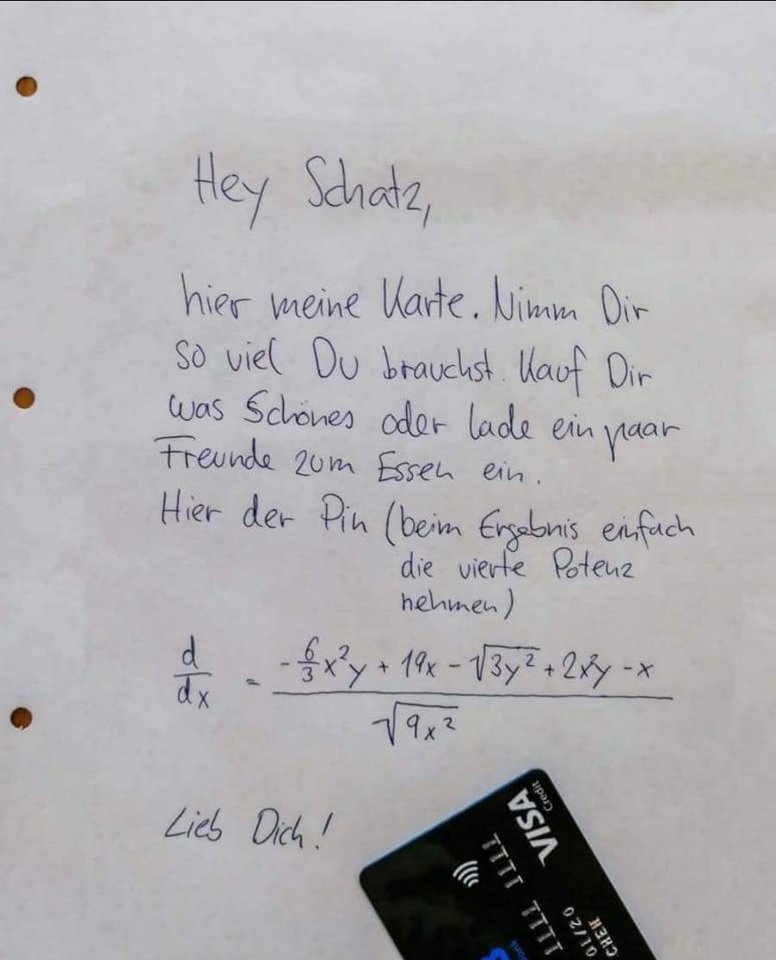 Hey Schatz,
hier meine Karte. Nimm Dir
so viel Du brauchst. Kauf Dir
was Schönes oder lade ein paar
Freunde zum Essen ein.
Hier der Pin (beim Ergebnis einfach
die vierte Potenz
nehmen)
d/dx = (-6/3x²y + 19x - √(3y²) + 2x²y - x) / √(9x²)
Lieb Dich!
VISA
Credit
1111 1111
01/20